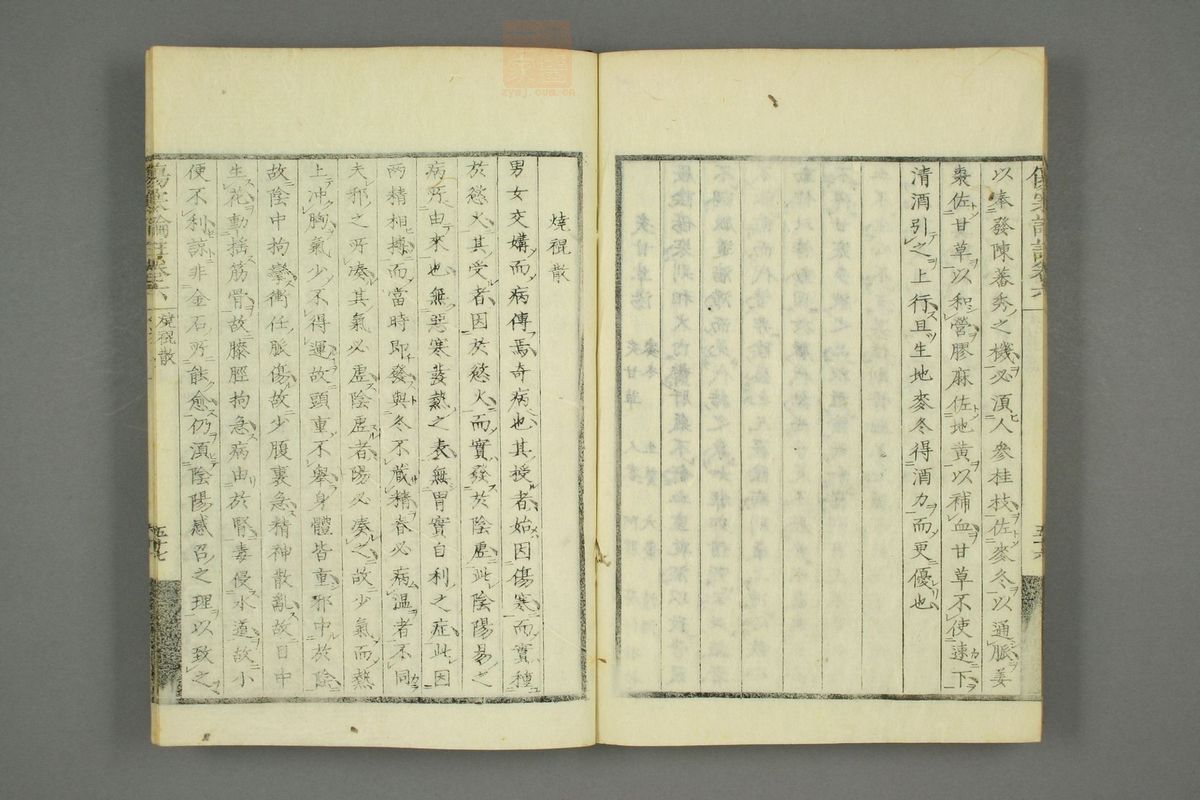 以奉發陳蕃秀之機必須人參桂枝佐麥冬以通脈姜
棗佐甘草以和營膠麻佐地黃以補血甘草不使速下
清酒引之上行且生地麥冬得酒力而更優也
五十六
燒裩散
男女交媾而病傳焉奇病也其授者始因傷寒而實種
於慾火其受者因於慾火而實發於陰虛此陰陽易之
病所由來也無惡寒發熱之表無胃實自利之症此因
兩精相搏而當時即發與冬不藏精春必病溫者不同
夫邪之所湊其氣必虛陰虛者陽必湊之故少氣而熱
上冲胸氣少不得運故頭重不舉身體皆重邪中於陰
故陰中拘攣衝任脈傷故少腹裏急精神散亂故目中
生花動搖筋骨故膝脛拘急病由於腎毒侵水道故小
便不利諒非金石所能愈仍須陰陽感召之理以致之
燒裩散
五十七
zysj.com.cn